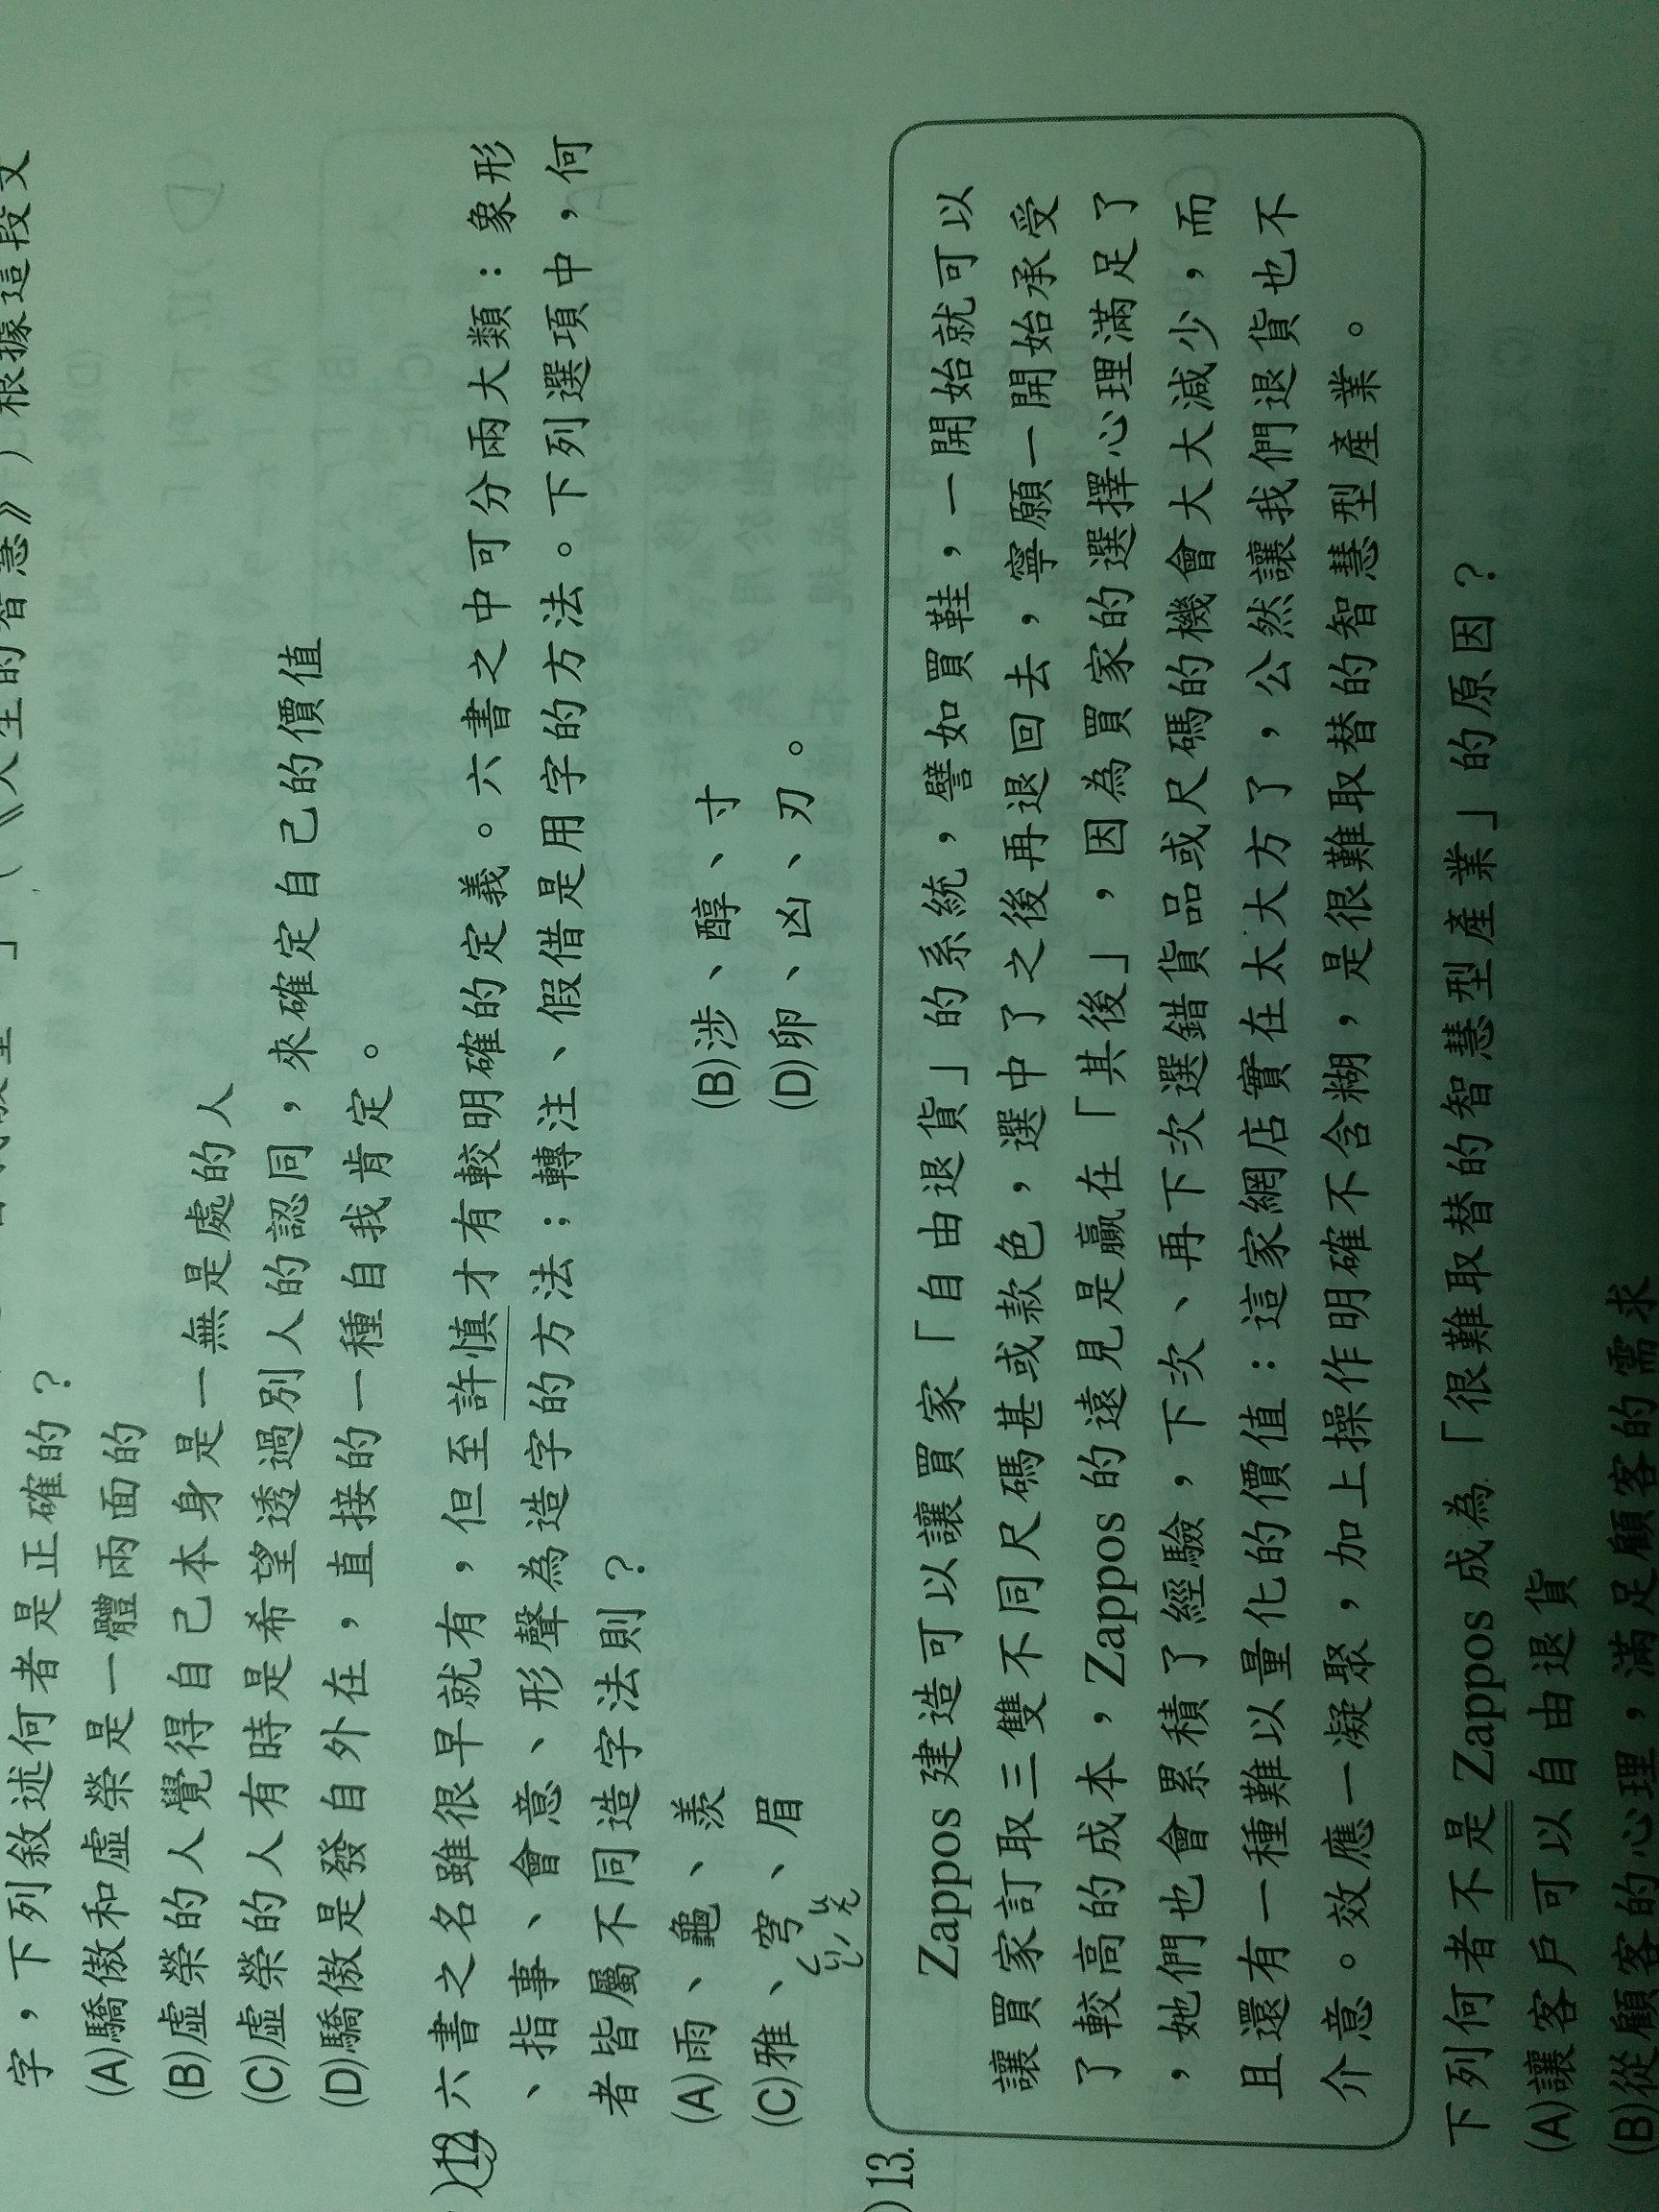 字，下列敘述何者是正確的？
(A)驕傲和虛榮是一體兩面的
(B)虛榮的人覺得自己本身是一無是處的人
(C)虛榮的人有時是希望透過別人的認同，來確定自己的價值
(D)驕傲是發自外在，直接的一種自我肯定。
)12. 六書之名雖很早就有，但至許慎才有較明確的定義。六書之中可分兩大類：象形
、指事、會意、形聲為造字的方法；轉注、假借是用字的方法。下列選項中，何
者皆屬不同造字法則？
(A)雨、龜、羨 (B)涉、醇、寸
(C)雅、穹、眉 (D)卵、凶、刃。
)13.
Zappos 建造可以讓買家「自由退貨」的系統，譬如買鞋，一開始就可以
讓買家訂取三雙不同尺碼甚或款色，選中了之後再退回去，寧願一開始承受
了較高的成本，Zappos 的遠見是贏在「其後」，因為買家的選擇心理滿足了
，她們也會累積了經驗，下次、再下次選錯貨品或尺碼的機會大大減少，而
且還有一種難以量化的價值：這家網店實在太大方了，公然讓我們退貨也不
介意。效應一凝聚，加上操作明確不含糊，是很難取替的智慧型產業。
下列何者不是 Zappos 成為「很難取替的智慧型產業」的原因？
(A)讓客戶可以自由退貨
(B)從顧客的心理，滿足顧客的需求